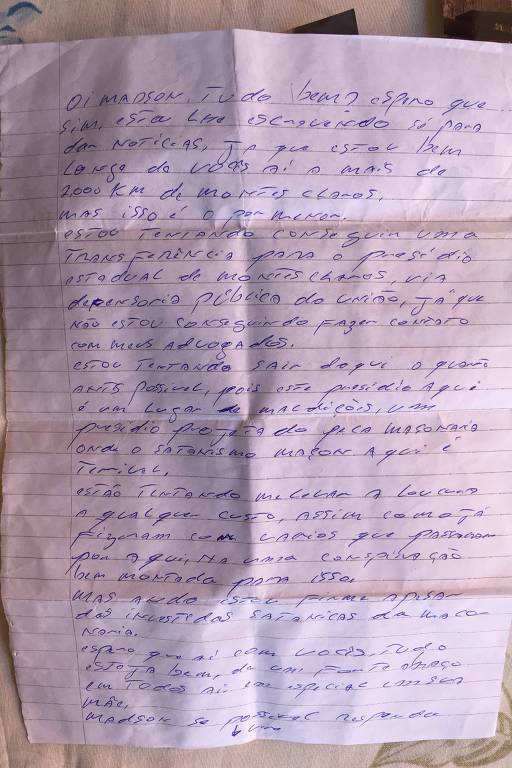 Oi MADSON, TUDO bem? espero que
sim, estou lhe escrevendo só para
dar NOTÍCIAS, JÁ que estou bem
Longe de vocês aí a mais de
2.000 Km de MONTES CLAROS,
mas isso é o por menor.
estou TENTANDO CONSEGUIR UMA
TRANSFERÊNCIA PARA O PRESÍDIO
estadual de MONTES CLAROS, VIA
defensoria PÚBLICA DA UNIÃO, JÁ que
NÃO estou CONSEGUINDO FAZER CONTATO
com meus ADVOGADOS.
estou TENTANDO SAIR daqui o quanto
ANTS POSSIVEL, pois este presídio AQUI
é um LUGAR de MALDIÇÕES, UM
presídio PROJETADO peLA MASONARIA
onde o SATANISMO MAÇON AQUI é
Terival,
estão Tentando me levar A Loucura
A qualquer custo, ASSIM COMO JÁ
Fizeram com varios que passaram
por aqui, HA UMA CONSPIRAÇÃO
bem montada PARA ISSO.
MAS AINDA estou Firme APESAR
das investidas SATANICAS da maço
naria.
espero que aí com vocês, TUDO
esteja bem, de um Forte abraço
em Todos Aí em especial em sua
mãe,
MADSON se possivel responda